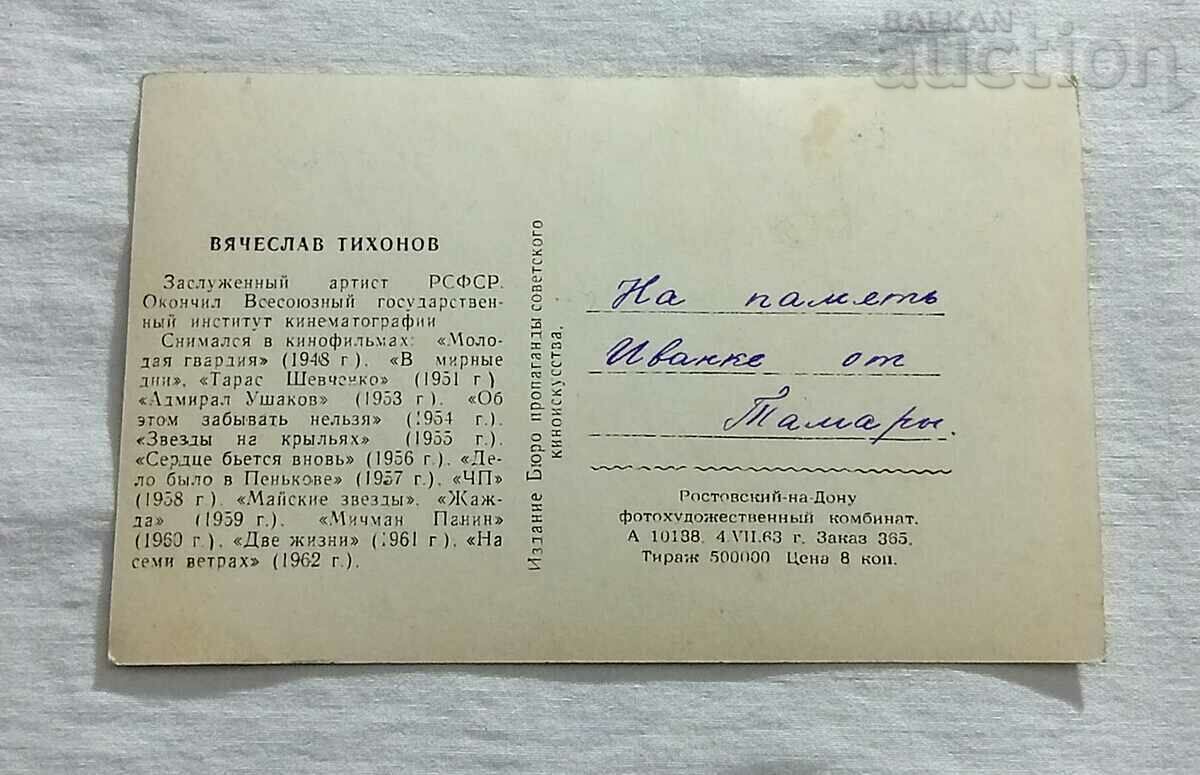 BALKAN
auction
ВЯЧЕСЛАВ ТИХОНОВ
Заслуженный артист РСФСР.
Окончил Всесоюзный государствен-
ный институт кинематографии
Снимался в кинофильмах: «Моло-
дая гвардия» (1948 г.), «В мирные
дни», «Тарас Шевченко» (1951 г.)
«Адмирал Ушаков» (1953 г.), «Об
этом забывать нельзя» (1954 г.).
«Звезды на крыльях» (1955 г.).
«Сердце бьется вновь» (1956 г.), «Де-
ло было в Пенькове» (1957 г.), «ЧП»
(1958 г.), «Майские звезды», «Жаж-
да» (1959 г.), «Мичман Панин»
(1960 г.), «Две жизни» (1961 г.), «На
семи ветрах» (1962 г.).
Издание Бюро пропаганды советского
киноискусства.
На память
Иванке от
Тамары.
Ростовский-на-Дону
фотохудожественный комбинат.
А 10138. 4.VII.63 г. Заказ 365.
Тираж 500000 Цена 8 коп.